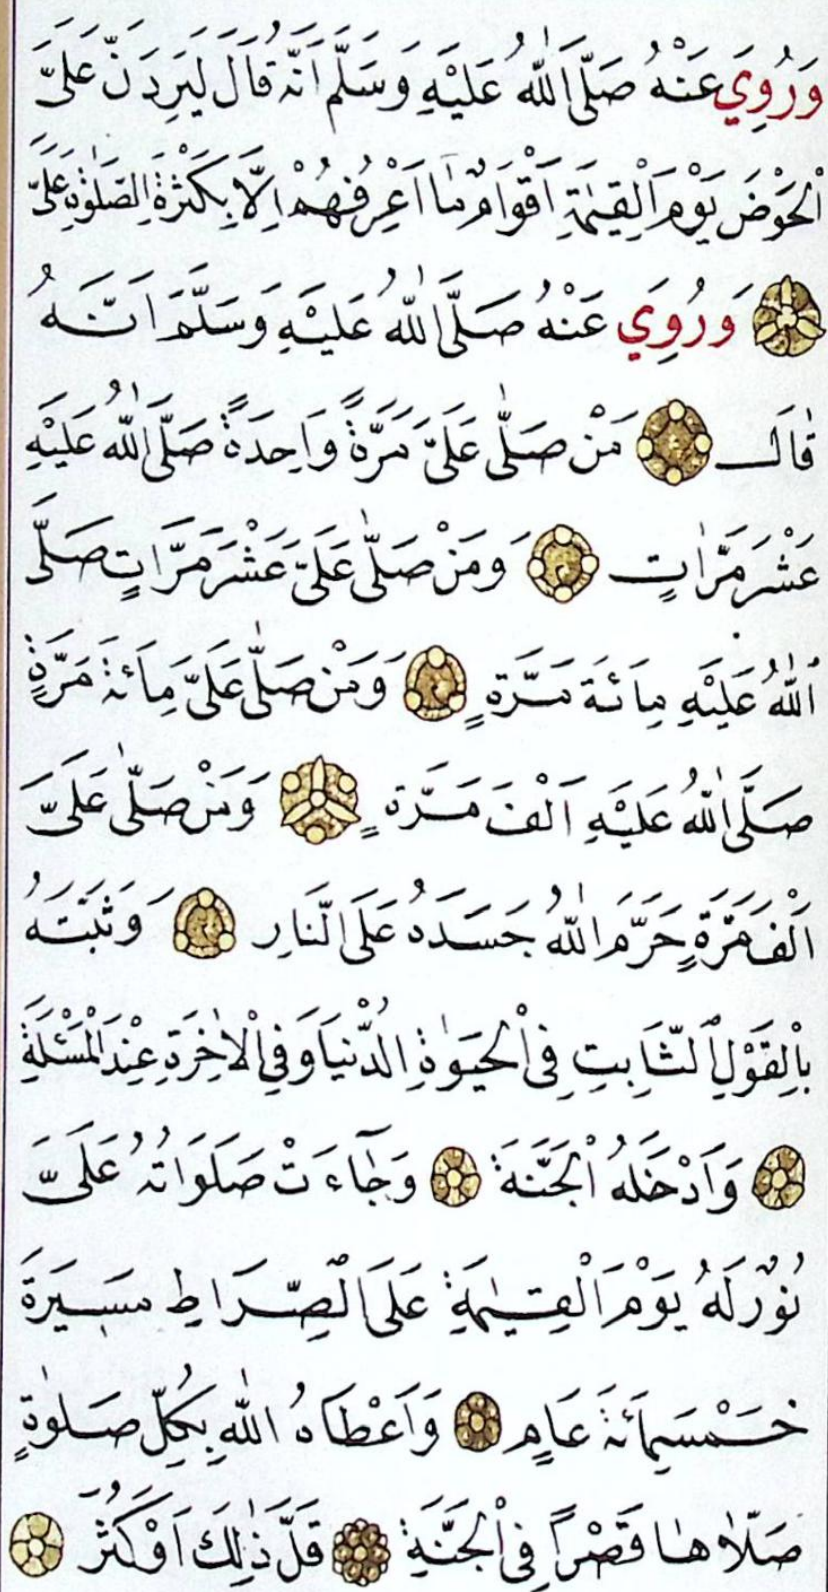 وَرُوِيَ عَنْهُ صَلَّى اللّٰهُ عَلَيْهِ وَسَلَّمَ اَنَّهُ قَالَ لَيَرِدَنَّ عَلَىَّ
الْحَوْضَ يَوْمَ الْقِيٰمَةِ اَقْوَامٌ مَا اَعْرِفُهُمْ اِلَّا بِكَثْرَةِ الصَّلٰوةِ عَلَىَّ
وَرُوِيَ عَنْهُ صَلَّى اللّٰهُ عَلَيْهِ وَسَلَّمَ اَنَّهُ
قَالَ مَنْ صَلّٰى عَلَىَّ مَرَّةً وَاحِدَةً صَلَّى اللّٰهُ عَلَيْهِ
عَشْرَ مَرَّاتٍ وَمَنْ صَلّٰى عَلَىَّ عَشْرَ مَرَّاتٍ صَلَّى
اللّٰهُ عَلَيْهِ مِائَةَ مَرَّةٍ وَمَنْ صَلّٰى عَلَىَّ مِائَةَ مَرَّةٍ
صَلَّى اللّٰهُ عَلَيْهِ اَلْفَ مَرَّةٍ وَمَنْ صَلّٰى عَلَىَّ
اَلْفَ مَرَّةٍ حَرَّمَ اللّٰهُ جَسَدَهُ عَلَى النَّارِ وَثَبَّتَهُ
بِالْقَوْلِ الثَّابِتِ فِى الْحَيٰوةِ الدُّنْيَا وَفِى الْاٰخِرَةِ عِنْدَ الْمَسْئَلَةِ
وَاَدْخَلَهُ الْجَنَّةَ وَجَاءَتْ صَلَوَاتُهُ عَلَىَّ
نُوْرٌ لَهُ يَوْمَ الْقِيٰمَةِ عَلَى الصِّرَاطِ مَسِيرَةَ
خَمْسِمِائَةِ عَامٍ وَاَعْطَاهُ اللّٰهُ بِكُلِّ صَلٰوةٍ
صَلَّاهَا قَصْرًا فِى الْجَنَّةِ قَلَّ ذٰلِكَ اَوْ كَثُرَ